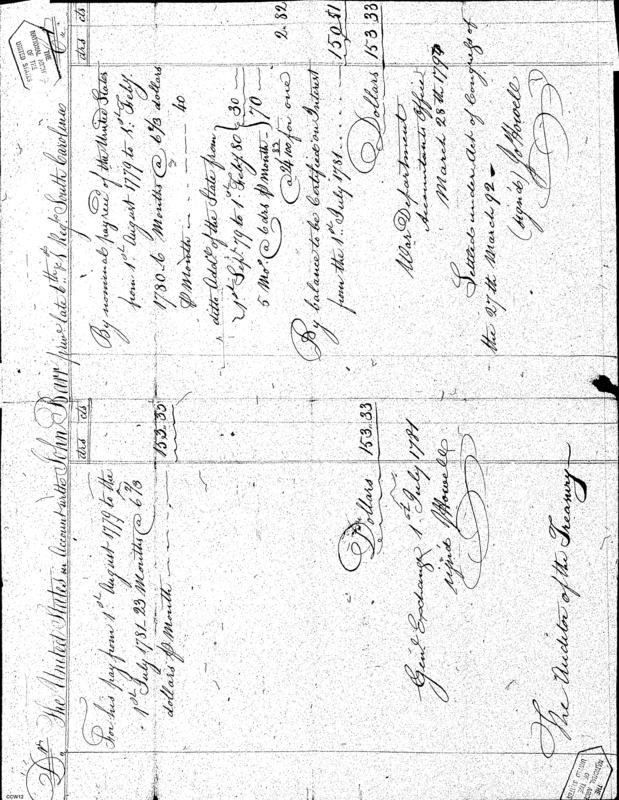 Dr. The United States in Account with John Barr private late 6th Regt South Carolina
drs cts
For his pay from 1st August 1779 to the
1st July 1781 - 23 Months @ 6 2/3
dollars P Month 153.33
Dollars 153.33
Genl. Exchange 1st July 1781
signed J Howell
The Auditor of the Treasury
drs cts
By nominal payree'd of the United States
from 1st August 1779 to 1st Feby
1780. 6 Months @ 6 2/3 dollars
P Month 40
ditto Addl. of the State from
1st Sept. 79 to 1st Feby 80 30
5 Mos. @ 6 drs P Month 70
@ 24 83/100 for one 2.82
By balance to be Certified on Interest
from the 1st July 1781 150.51
Dollars 153.33
War Department
Accountants Office
March 28th 1794
Settled under Act of Congress of
the 27th March 92
(signed) J Howell
THE
NATIONAL ARCHIVES
OF THE
UNITED STATES
THE
NATIONAL ARCHIVES
OF THE
UNITED STATES
CCW12